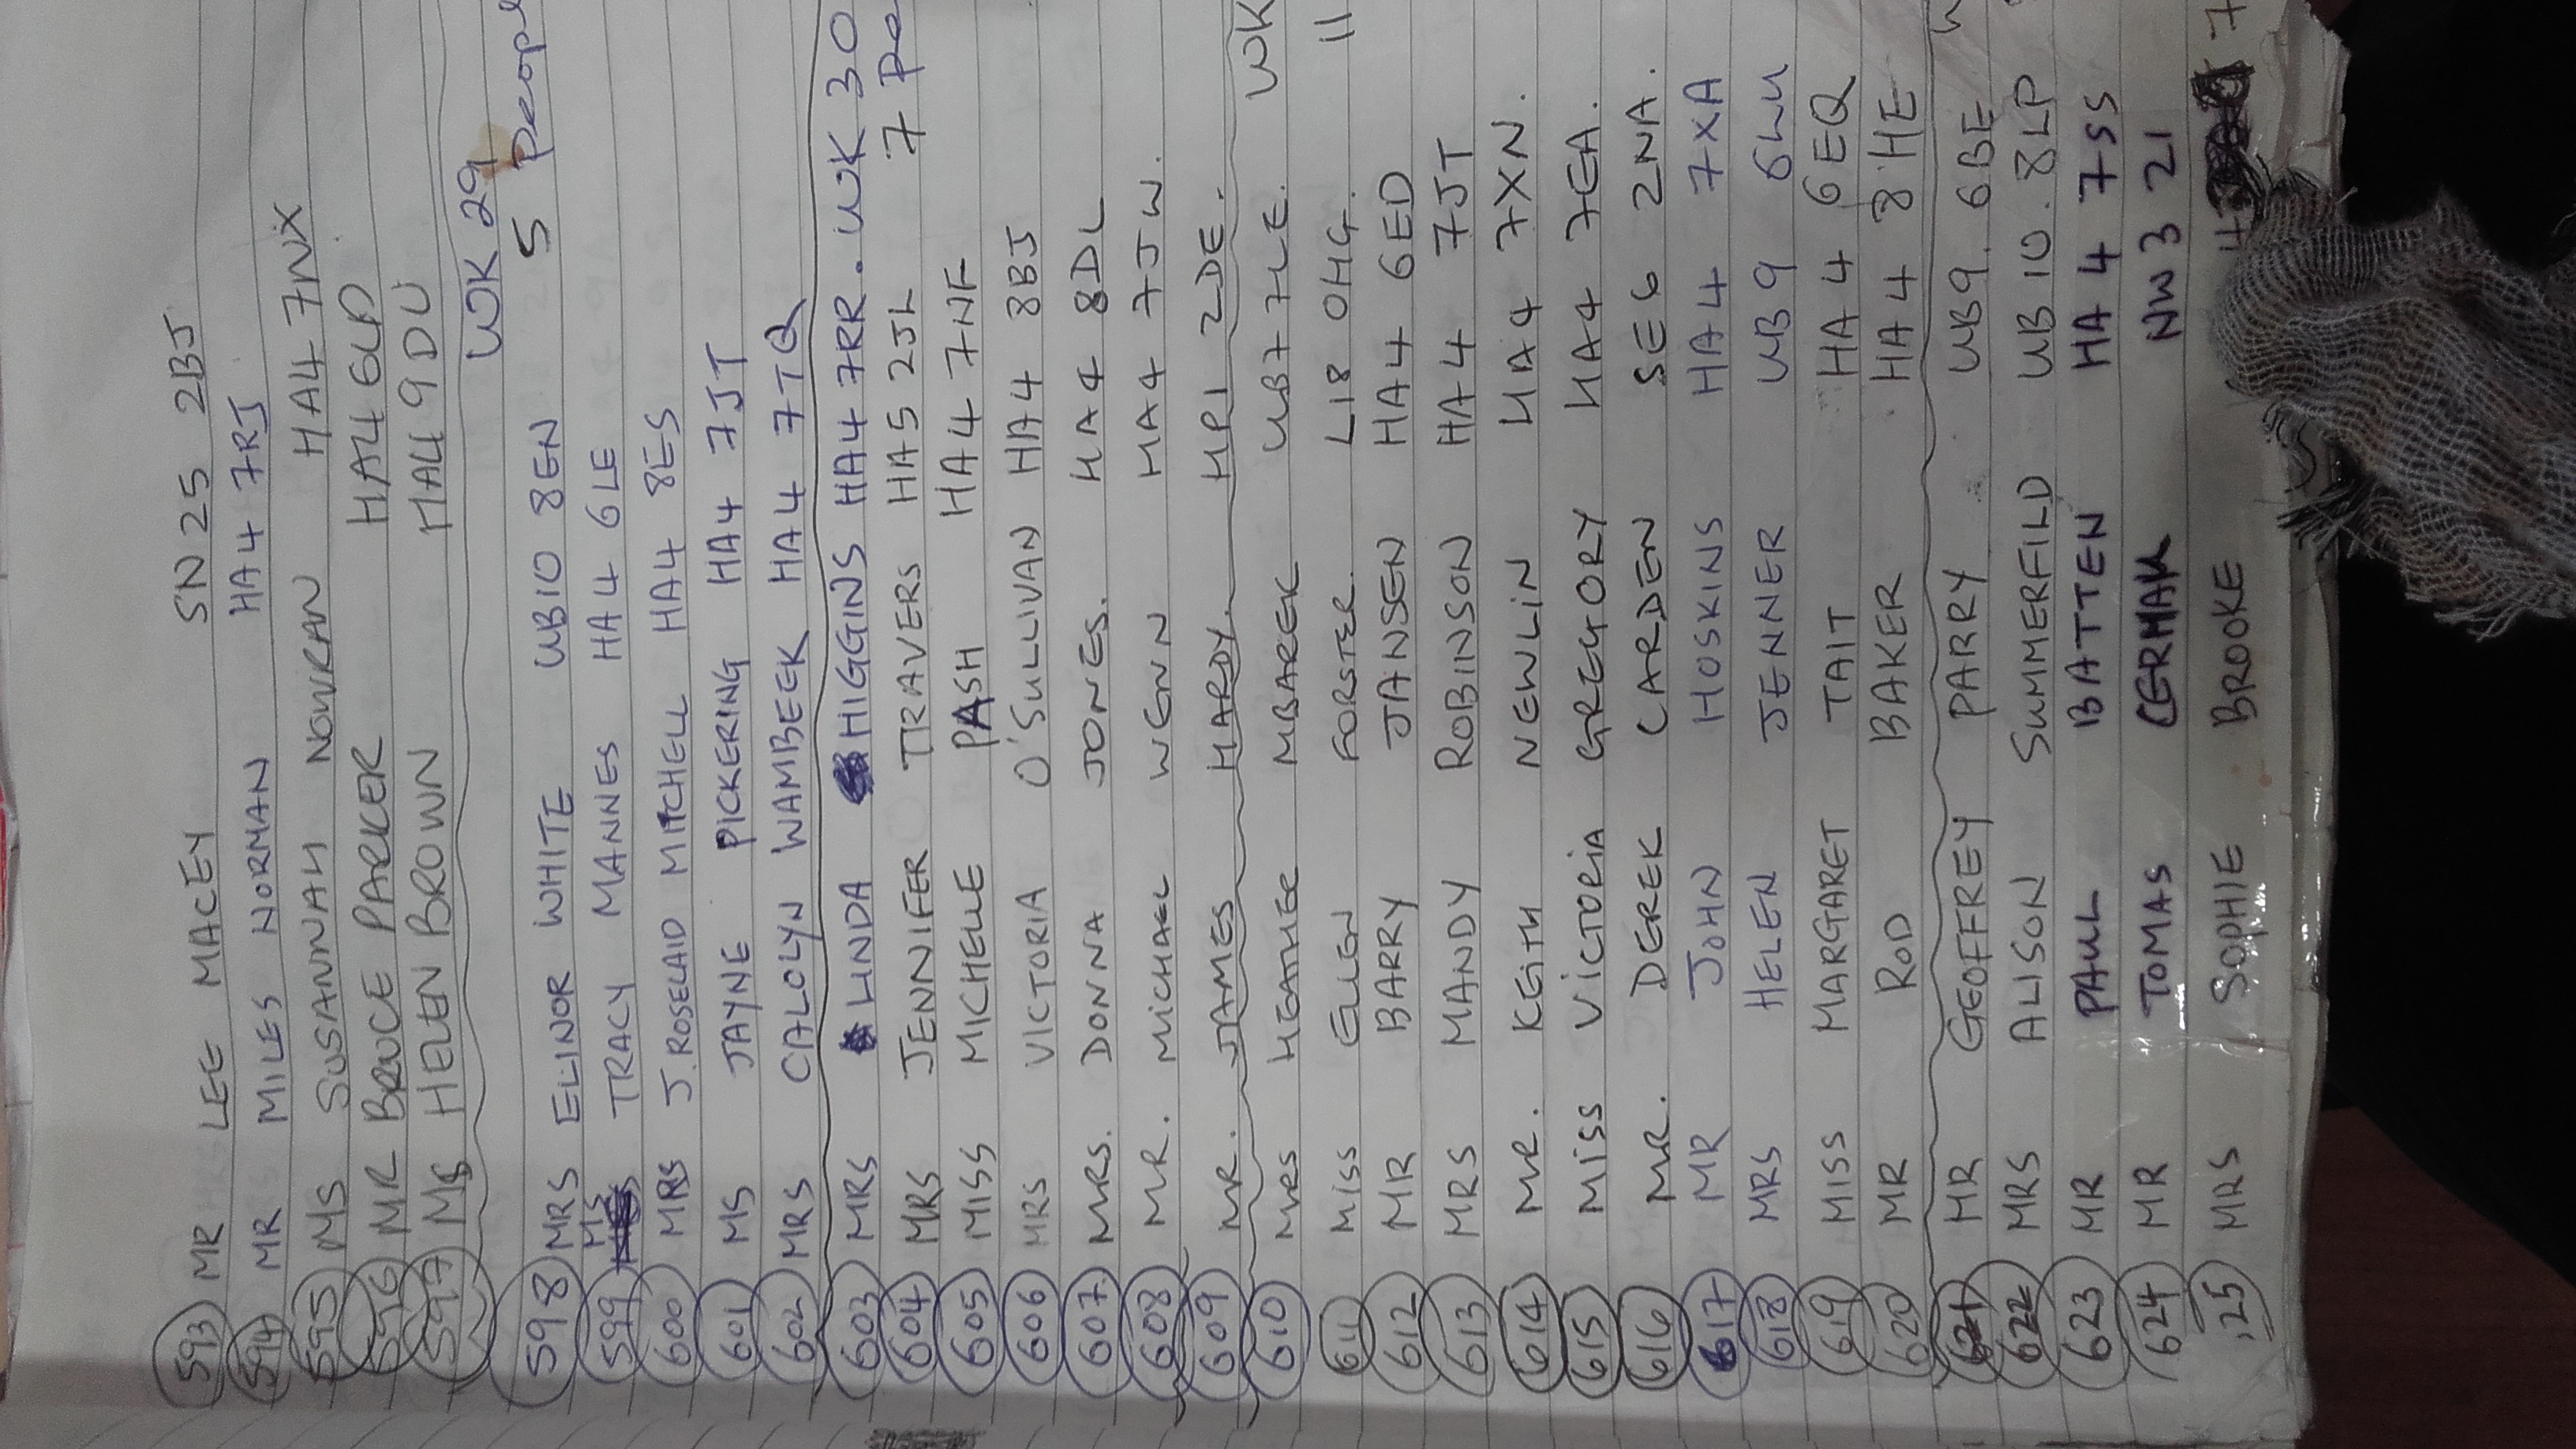 593 MR LEE MACEY SN25 2BJ
594 MR MILES NORMAN HA4 7RJ
595 MS SUSANNAH NOWRAN HA4 7NX
596 MR BRUCE PARKER HA4 6LD
597 MS HELEN BROWN HA4 9DU
WK 29
598 MRS ELINOR WHITE UB10 8EN 5 Peopl
599 MS TRACY MANNES HA4 6LE
600 MRS J. ROSELAID MITCHELL HA4 8ES
601 MS JAYNE PICKERING HA4 7JT
602 MRS CALOLYN WAMBEEK HA4 7TQ
603 MRS LINDA HIGGINS HA4 7RR. WK 30
604 MRS JENNIFER TRAVERS HA5 2JL 7 Pe
605 MISS MICHELLE PASH HA4 7NF
606 MRS VICTORIA O'SULLIVAN HA4 8BJ
607 MRS. DONNA JONES. HA4 8DL
608 MR. MICHAEL WENN HA4 7JW.
609 MR. JAMES HARDY. HP1 2DE.
610 MRS HEATHER MBAREK UB7 7LE. WK
611 MISS ELLEN FORSTER. L18 0HG. 11
612 MR BARRY JANSEN HA4 6ED
613 MRS MANDY ROBINSON HA4 7JT
614 MR. KEITH NEWLIN HA4 7XN.
615 MISS VICTORIA GREGORY HA4 7EA.
616 MR. DEREK CARDEN SE6 2NA.
617 MR JOHN HOSKINS HA4 7XA
618 MRS HELEN JENNER UB9 6LU
619 MISS MARGARET TAIT HA4 6EQ
620 MR ROD BAKER HA4 8HE
621 MR GEOFFREY PARRY UB9. 6BE
622 MRS ALISON SUMMERFILD UB10. 8LP
623 MR PAUL BATTEN HA4 7SS
624 MR TOMAS CERMAK NW3 21
25 MRS SOPHIE BROOKE 4 7